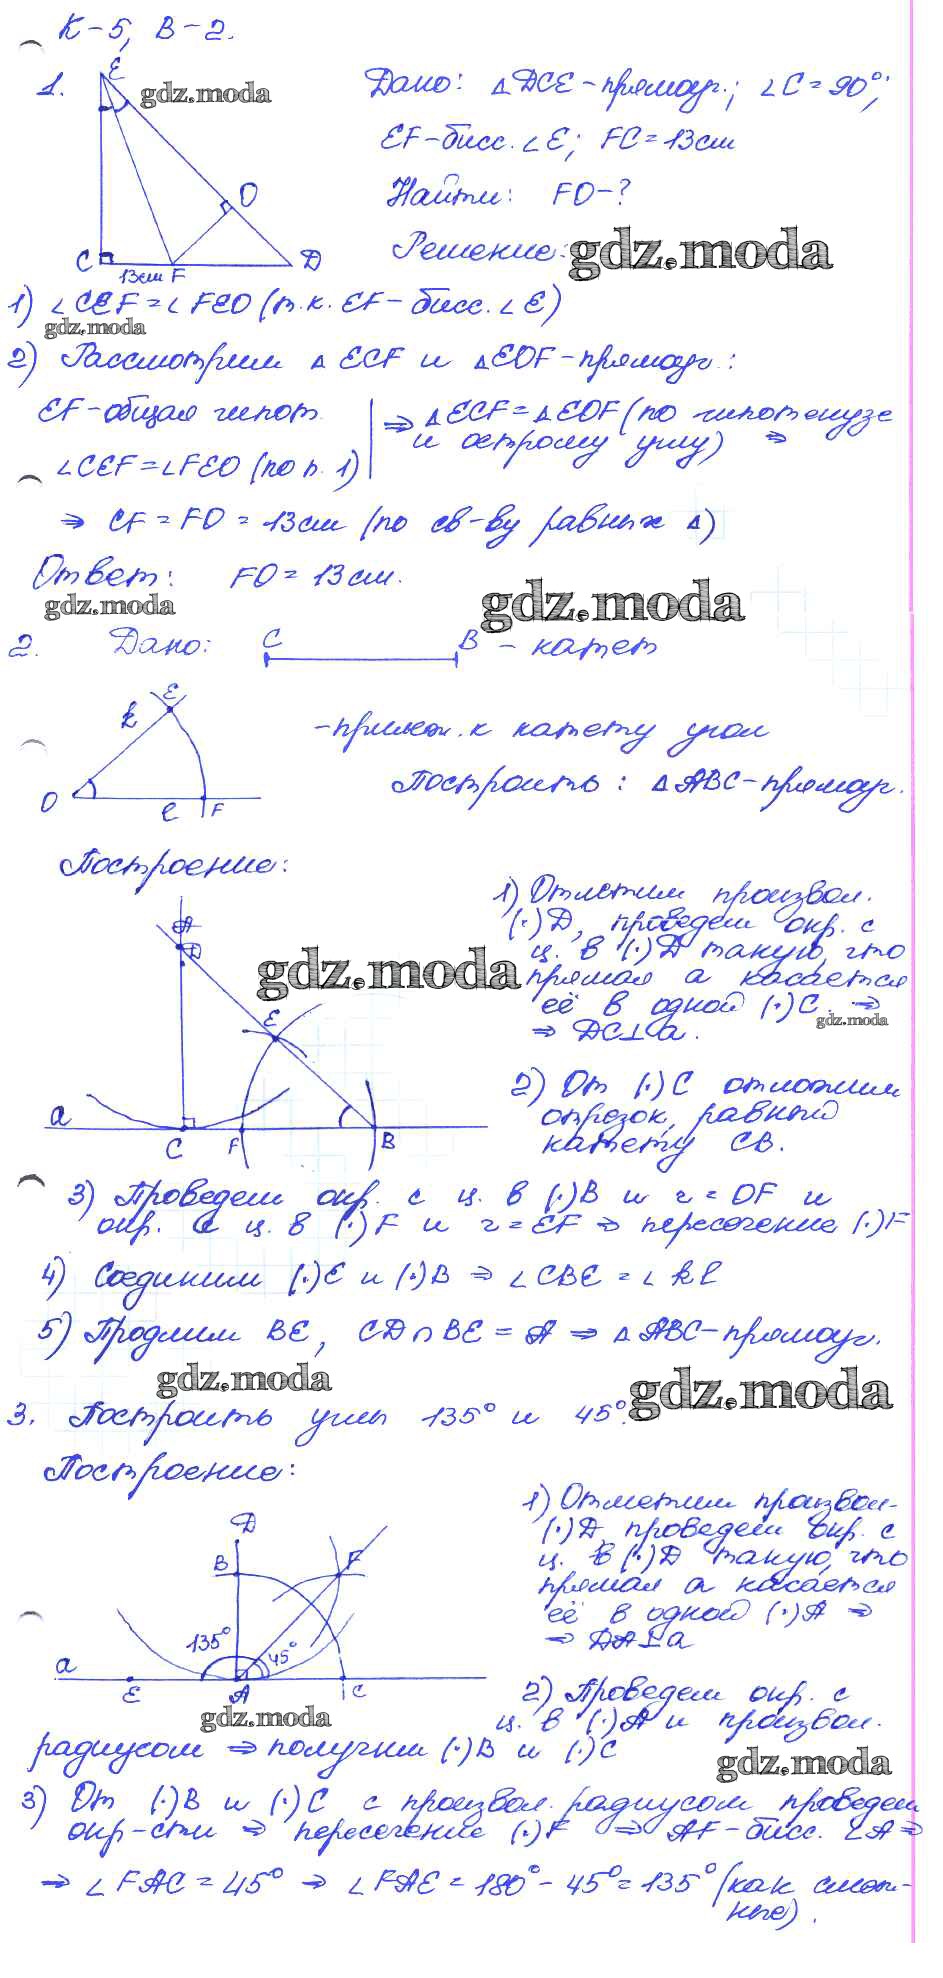 К-5, В-2.
1. E gdz.moda Дано: △DCE-прямоуг.; ∠C=90°;
EF-бисс.∠E; FC=13см
O Найти: FO-?
C 13см F D Решение: gdz.moda
1) ∠CEF=∠FEO (т.к. EF-бисс.∠E)
gdz.moda
2) Рассмотрим △ECF и △EOF-прямоуг:
EF-общая гипот. ⇒ △ECF=△EOF (по гипотенузе
и острому углу) ⇒
∠CEF=∠FEO (по п. 1)
⇒ CF=FO=13см (по св-ву равных △)
Ответ: FO=13см.
gdz.moda gdz.moda
2. Дано: C B - катет
k E
-прилеж. к катету угол
O l F Построить: △ABC-прямоуг.
Построение:
A D E a C F B
gdz.moda
1) Отметим произвол.
(·)D, проведем окр. с
ц. в (·)D такую, что
прямая a касается
её в одной (·)C. ⇒
gdz.moda
⇒ DC⊥a.
2) От (·)C отложим
отрезок, равный
катету CB.
3) Проведем окр. с ц. в (·)B и r=OF и
окр. с ц. в (·)F и r=EF ⇒ пересечение (·)F
4) Соединим (·)E и (·)B ⇒ ∠CBE=∠kl
5) Продлим BE, CD∩BE=A ⇒ △ABC-прямоуг.
gdz.moda gdz.moda
3. Построить углы 135° и 45°.
Построение:
D B F 135° 45° a E A C
gdz.moda
1) Отметим произвол-
(·)D, проведем окр. с
ц. в (·)D такую, что
прямая a касается
её в одной (·)A ⇒
⇒ DA⊥a
2) Проведем окр. с
ц. в (·)A и произвол.
радиусом ⇒ получим (·)B и (·)C
gdz.moda
3) От (·)B и (·)C с произвол. радиусом проведем
окр-сти ⇒ пересечение (·)F ⇒ AF-бисс. ∠A ⇒
⇒ ∠FAC=45° ⇒ ∠FAE=180°-45°=135° (как смеж-
ные).